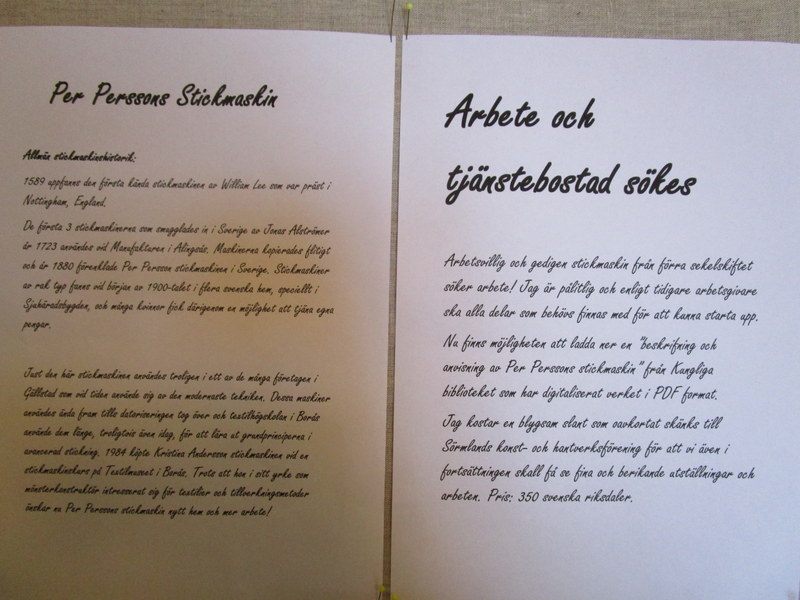 Per Perssons Stickmaskin
Allmän stickmaskinshistorik:
1589 uppfanns den första kända stickmaskinen av William Lee som var präst i
Nottingham, England.
De första 3 stickmaskinerna som smugglades in i Sverige av Jonas Alströmer
år 1723 användes vid Manufakturen i Alingsås. Maskinerna kopierades flitigt
och år 1880 förenklade Per Persson stickmaskinen i Sverige. Stickmaskiner
av rak typ fanns vid början av 1900-talet i flera svenska hem, speciellt i
Sjuhäradsbygden, och många kvinnor fick därigenom en möjlighet att tjäna egna
pengar.
Just den här stickmaskinen användes troligen i ett av de många företagen i
Gällstad som vid tiden använde sig av den modernaste tekniken. Dessa maskiner
användes ända fram tills datoriseringen tog över och textilhögskolan i Borås
använde dem länge, troligtvis även idag, för att lära ut grundprinciperna i
avancerad stickning. 1984 köpte Kristina Andersson stickmaskinen vid en
stickmaskinskurs på Textilmuseet i Borås. Trots att hon i sitt yrke som
mönsterkonstruktör intresserat sig för textilier och tillverkningsmetoder
önskar nu Per Perssons stickmaskin nytt hem och mer arbete!
Arbete och
tjänstebostad sökes
Arbetsvillig och gedigen stickmaskin från förra sekelskiftet
söker arbete! Jag är pålitlig och enligt tidigare arbetsgivare
ska alla delar som behövs finnas med för att kunna starta upp.
Nu finns möjligheten att ladda ner en "beskrifning och
anvisning av Per Perssons stickmaskin" från Kungliga
biblioteket som har digitaliserat verket i PDF format.
Jag kostar en blygsam slant som oavkortat skänks till
Sörmlands konst- och hantverksförening för att vi även i
fortsättningen skall få se fina och berikande utställningar och
arbeten. Pris: 350 svenska riksdaler.